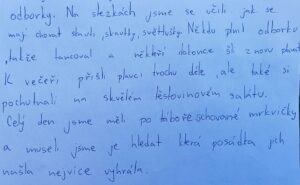 odborky. Na stezkách jsme se učili jak se
mají chovat skauti, skautky, světlušky. Někdo plnil odborku
, takže tancoval a někteří dokonce šli znovu plavat
K večeři přišli plavci trochu déle, ale také si
pochutnali na skvělém těstovinovém salátu.
Celý den jsme měli po táboře schované mrkvičky
a museli jsme je hledat která posádka jich
našla nejvíce vyhrála.